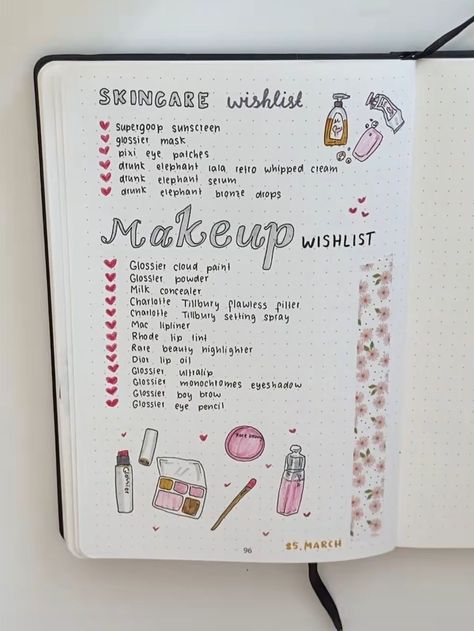 SKINCARE wishlist
supergoop sunscreen
glossier mask
pixi eye patches
drunk elephant lala retro whipped cream
drunk elephant serum
drunk elephant bronze drops
Makeup WISHLIST
Glossier cloud paint
Glossier powder
Milk concealer
Charlotte Tillbury flawless filter
Charlotte Tillbury setting spray
Mac lipliner
Rhode lip tint
Rare beauty highlighter
Dior lip oil
Glossier ultralip
Glossier monochromes eyeshadow
Glossier boy brow
Glossier eye pencil
96
25. MARCH